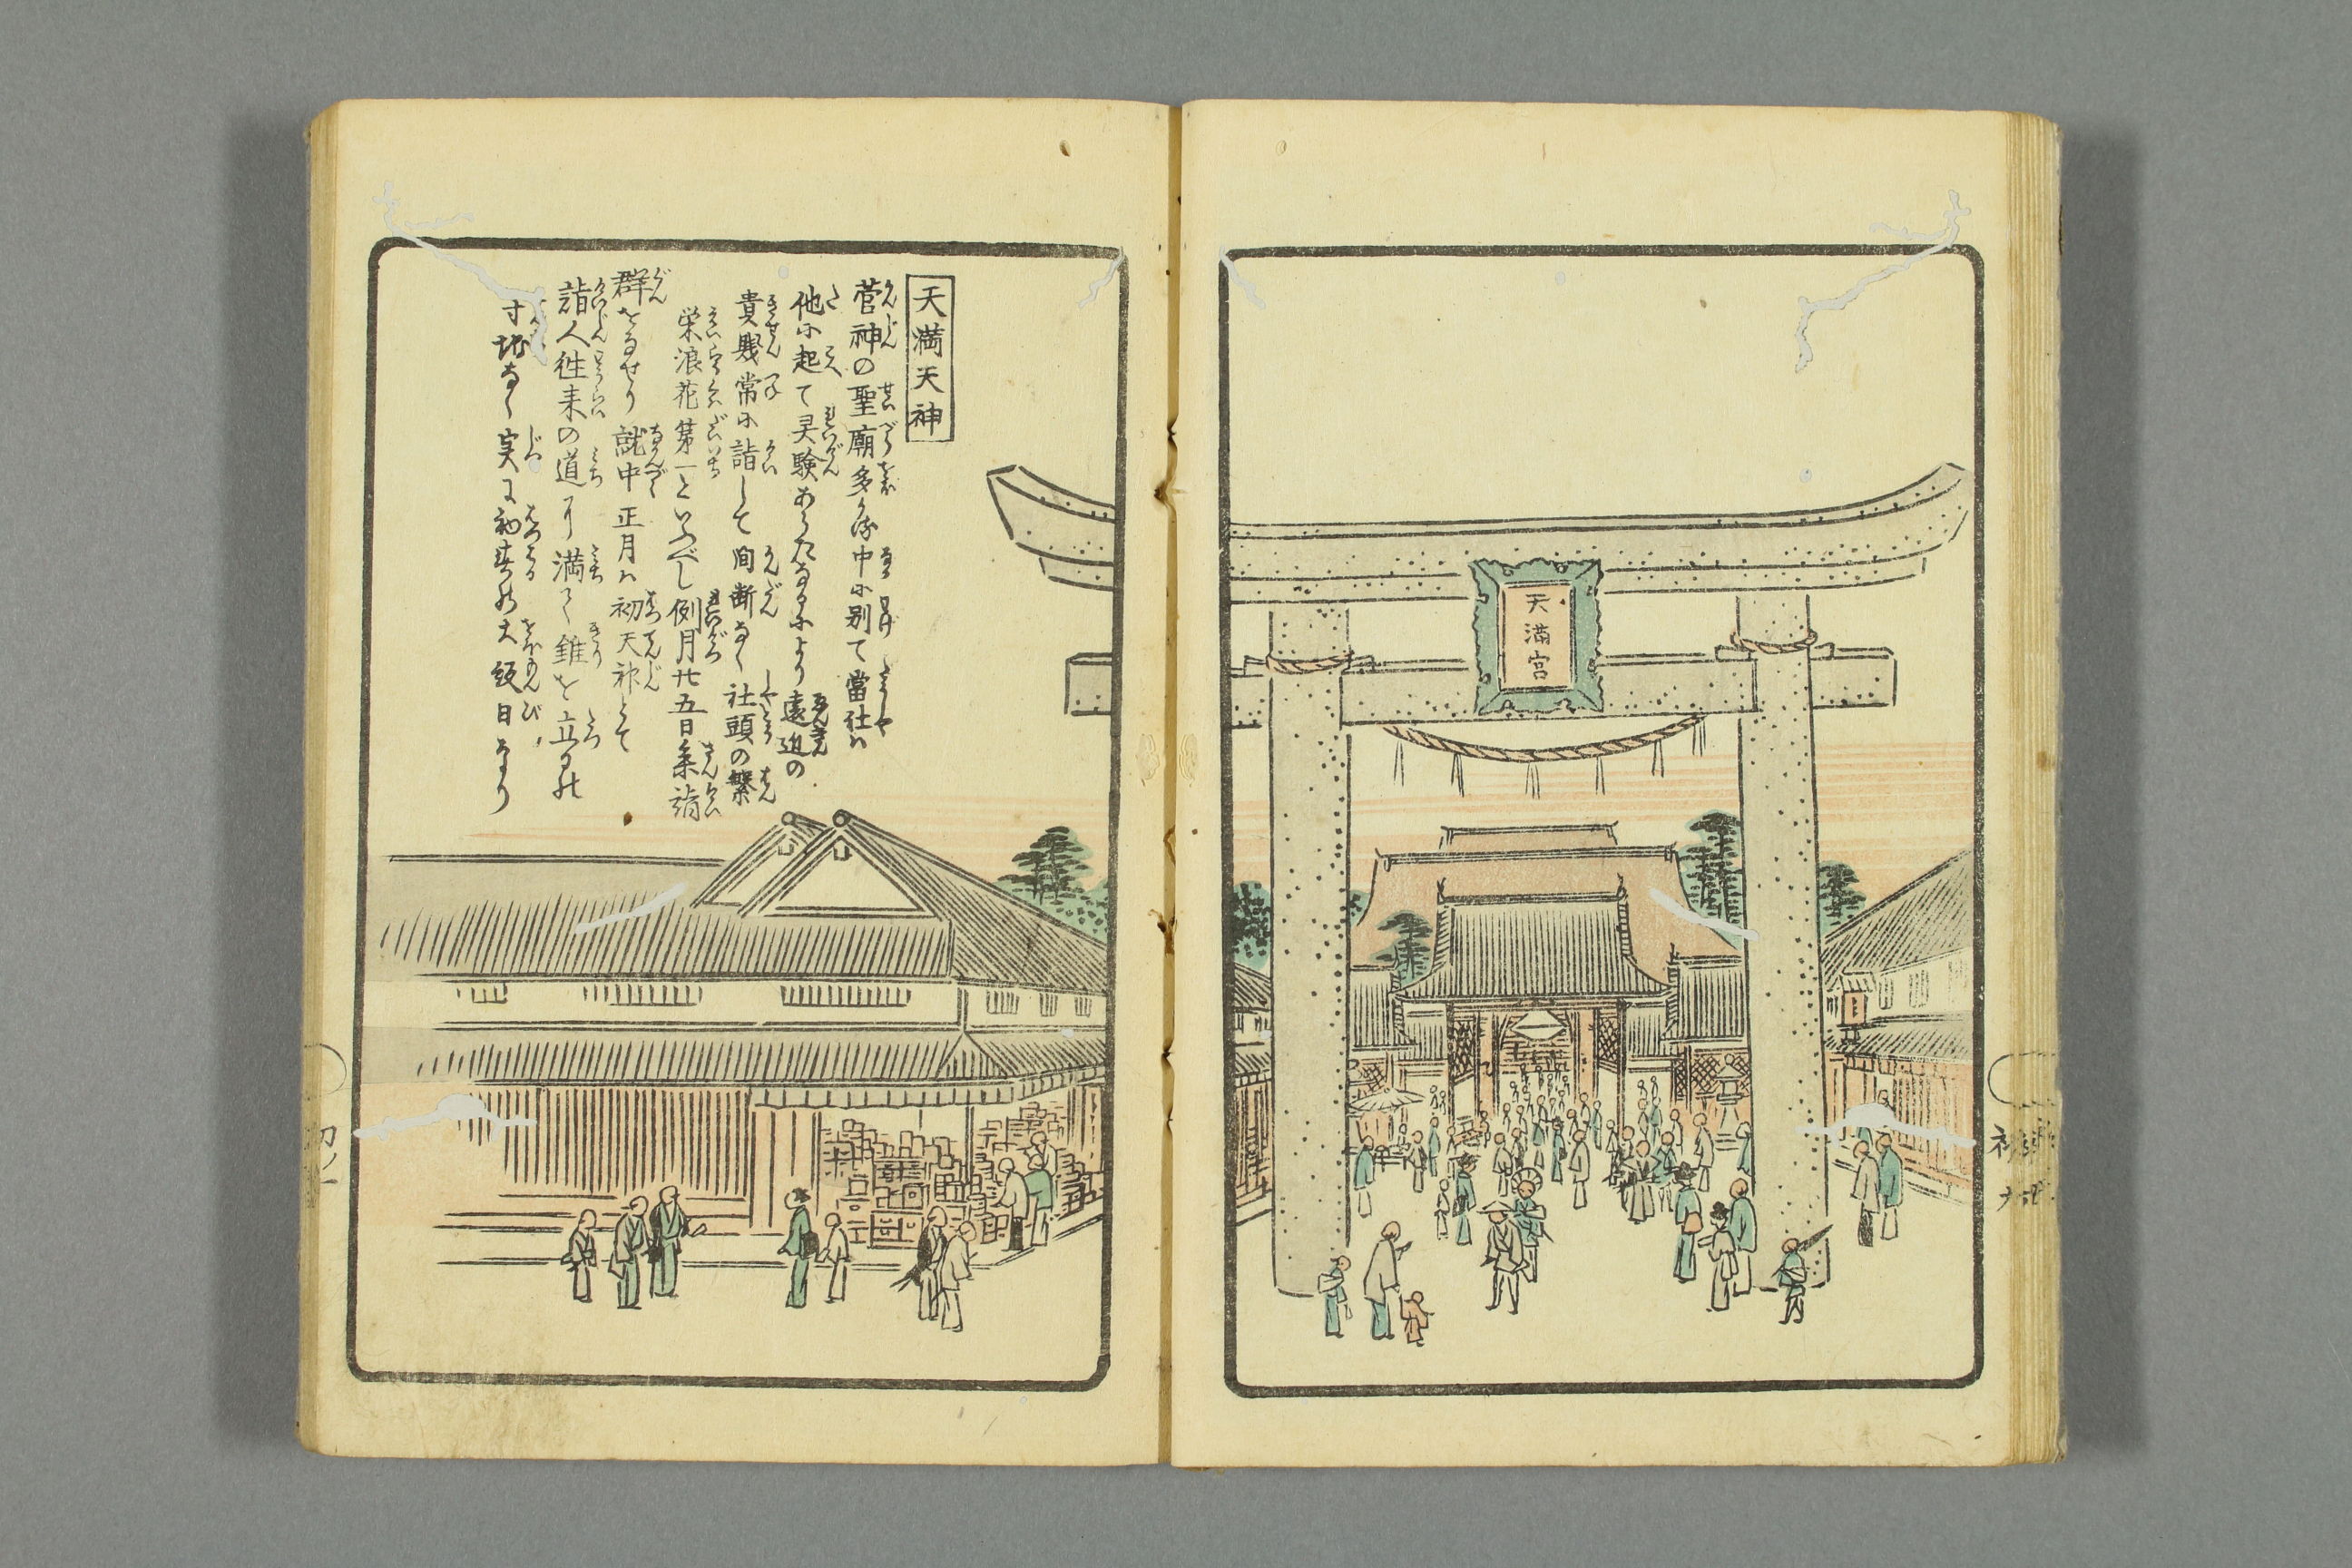 天満宮
天満天神
菅神の聖廟多かる中に別て當社ハ
他に起て灵験あらたなるにより遠近の
貴賤常に詣して間断なく社頭の繁
栄浪花第一といふべし例月廿五日参詣
群をなせり就中正月ハ初天神とて
詣人徃来の道に満て錐を立るの
寸地なく実に初春の大紋日なり